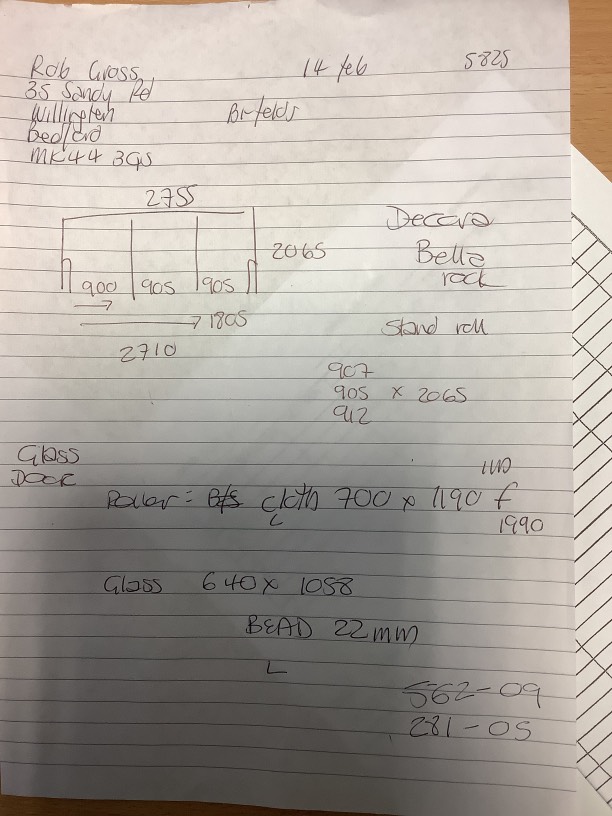 Rob Gross 14 feb 5825
35 Sandy Rd
Willington Bifolds
Bedford
MK44 3QS
2755
Decora
2065
Bella
900 905 905
rock
1805
Stand roll
2710
907
905 x 2065
912
Glass
Door
Roller: B/s cloth 700 x 1190 f
L
1990
Glass 640 x 1058
BEAD 22mm
L
562-09
281-05